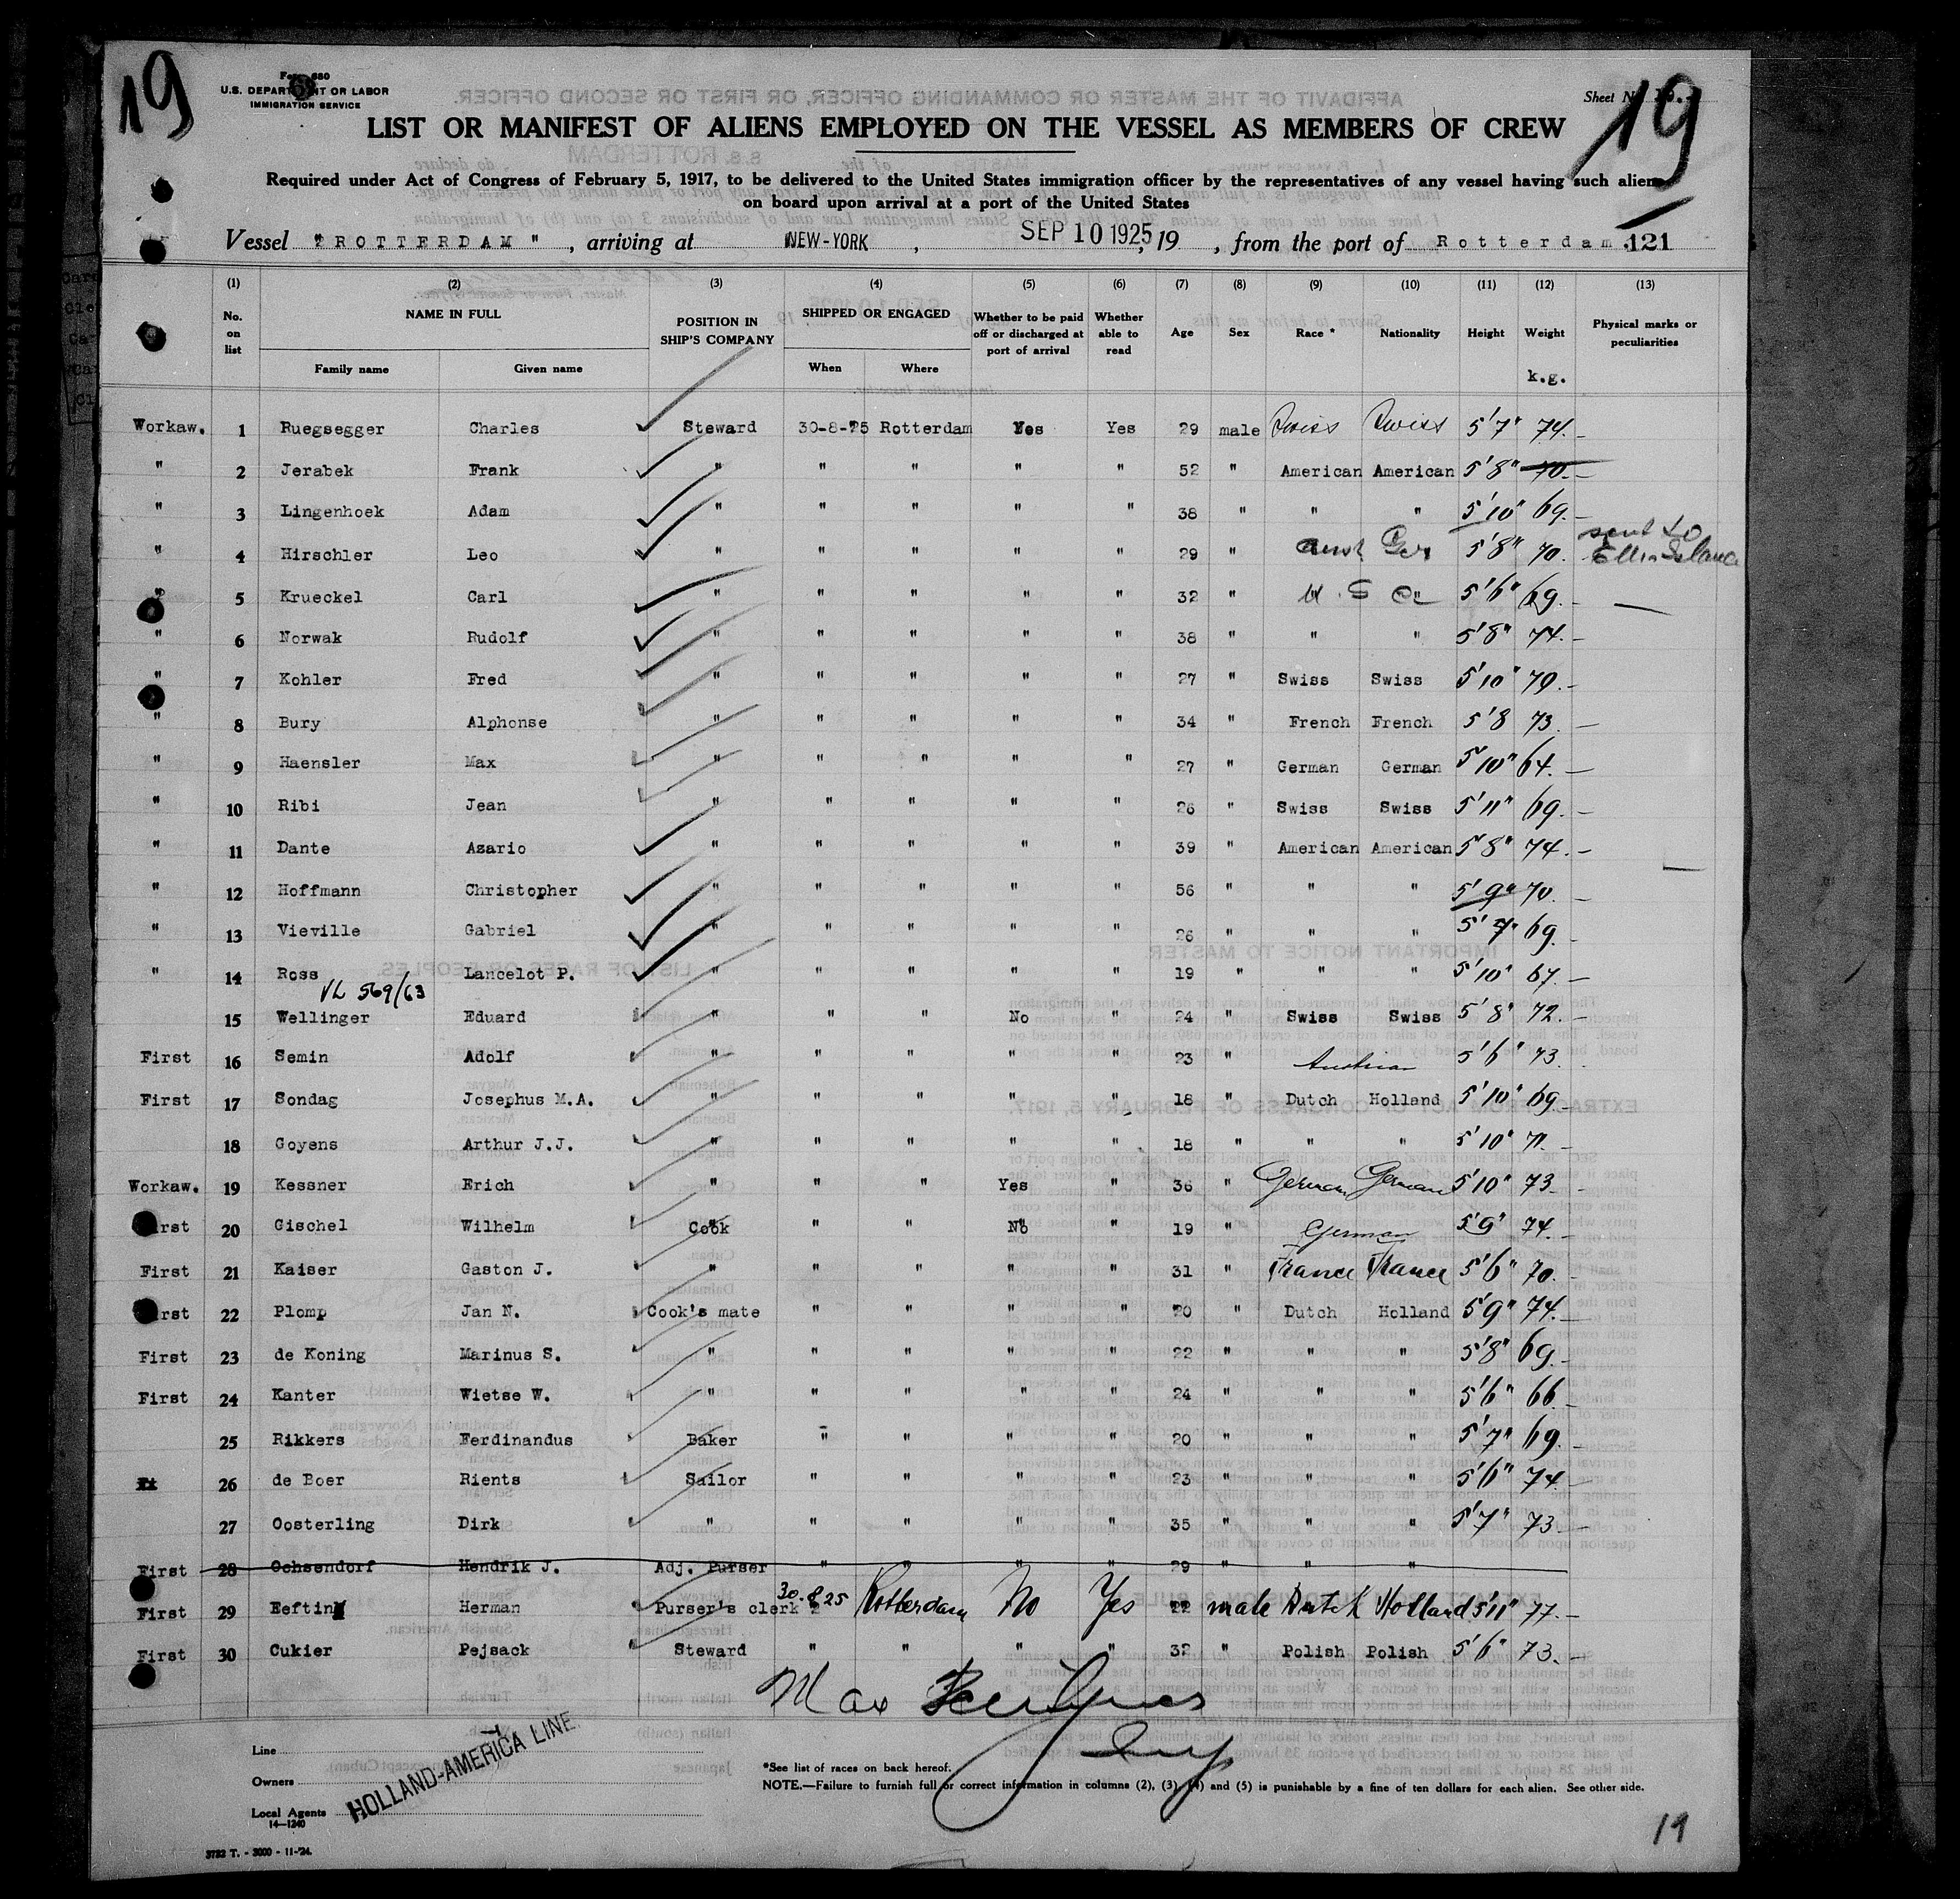 19
Form 680
U.S. DEPARTMENT OR LABOR
IMMIGRATION SERVICE
Sheet No.
19
LIST OR MANIFEST OF ALIENS EMPLOYED ON THE VESSEL AS MEMBERS OF CREW
Required under Act of Congress of February 5, 1917, to be delivered to the United States immigration officer by the representatives of any vessel having such aliens
on board upon arrival at a port of the United States
Vessel "ROTTERDAM", arriving at NEW-YORK, SEP 10 1925, 19 , from the port of Rotterdam 121
(1) (2) (3) (4) (5) (6) (7) (8) (9) (10) (11) (12) (13)
No. on list NAME IN FULL POSITION IN SHIP'S COMPANY SHIPPED OR ENGAGED Whether to be paid off or discharged at port of arrival Whether able to read Age Sex Race * Nationality Height Weight Physical marks or peculiarities
Family name Given name When Where k.g.
Workaw. 1 Ruegsegger Charles Steward 30-8-25 Rotterdam Yes Yes 29 male Swiss Swiss 5'7" 74.-
" 2 Jerabek Frank " " " " " 52 " American American 5'8" 70.-
" 3 Lingenhoek Adam " " " " " 38 " " " 5'10" 69.-
" 4 Hirschler Leo " " " " " 29 " Aust Ger 5'8" 70. sent to Ellis Island
" 5 Krueckel Carl " " " " " 32 " U S a 5'6" 69.- —
" 6 Norwak Rudolf " " " " " 38 " " " 5'8" 74.-
" 7 Kohler Fred " " " " " 27 " Swiss Swiss 5'10" 79.-
" 8 Bury Alphonse " " " " " 34 " French French 5'8 73.-
" 9 Haensler Max " " " " " 27 " German German 5'10" 64.-
" 10 Ribi Jean " " " " " 26 " Swiss Swiss 5'11" 69.-
" 11 Dante Azario " " " " " 39 " American American 5'8" 74.-
" 12 Hoffmann Christopher " " " " " 56 " " " 5'9" 70.-
" 13 Vieville Gabriel " " " " " 26 " " " 5'7" 69.-
" 14 Ross Lancelot P. " " " " " 19 " " " 5'10" 67.-
VL 569/63
15 Wellinger Eduard " " " No " 24 " Swiss Swiss 5'8" 72.-
First 16 Semin Adolf " " " " " 23 " Austrian 5'6" 73.
First 17 Sondag Josephus M.A. " " " " " 18 " Dutch Holland 5'10" 69.-
18 Goyens Arthur J.J. " " " " " 18 " " " 5'10" 71.-
Workaw. 19 Kessner Erich " " " Yes " 36 " German German 5'10" 73.-
First 20 Gischel Wilhelm Cook " " No " 19 " German 5'9" 74.-
First 21 Kaiser Gaston J. " " " " " 31 " France France 5'6" 70.-
First 22 Plomp Jan N. Cook's mate " " " " 20 " Dutch Holland 5'9" 74.-
First 23 de Koning Marinus S. " " " " " 22 " " " 5'8" 69.-
First 24 Kanter Wietse W. " " " " " 24 " " " 5'6" 66.-
25 Rikkers Ferdinandus Baker " " " " 20 " " " 5'7" 69.-
26 de Boer Rients Sailor " " " " 23 " " " 5'6" 74.-
27 Oosterling Dirk " " " " " 35 " " " 5'7" 73.-
First 28 Ochsendorf Hendrik J. Adj. Purser " " " " 29 " " "
First 29 Eefting Herman Purser's clerk 30-8 25 Rotterdam No Yes 22 male Dutch Holland 5'11" 77.-
First 30 Cukier Pejsack Steward " " " " 32 " Polish Polish 5'6" 73.-
Max
Insp
Line
Owners
Local Agents
HOLLAND-AMERICA LINE
14—1240
3732 T. - 3000 - 11-'24.
*See list of races on back hereof.
NOTE.—Failure to furnish full or correct information in columns (2), (3), (4) and (5) is punishable by a fine of ten dollars for each alien. See other side.
19